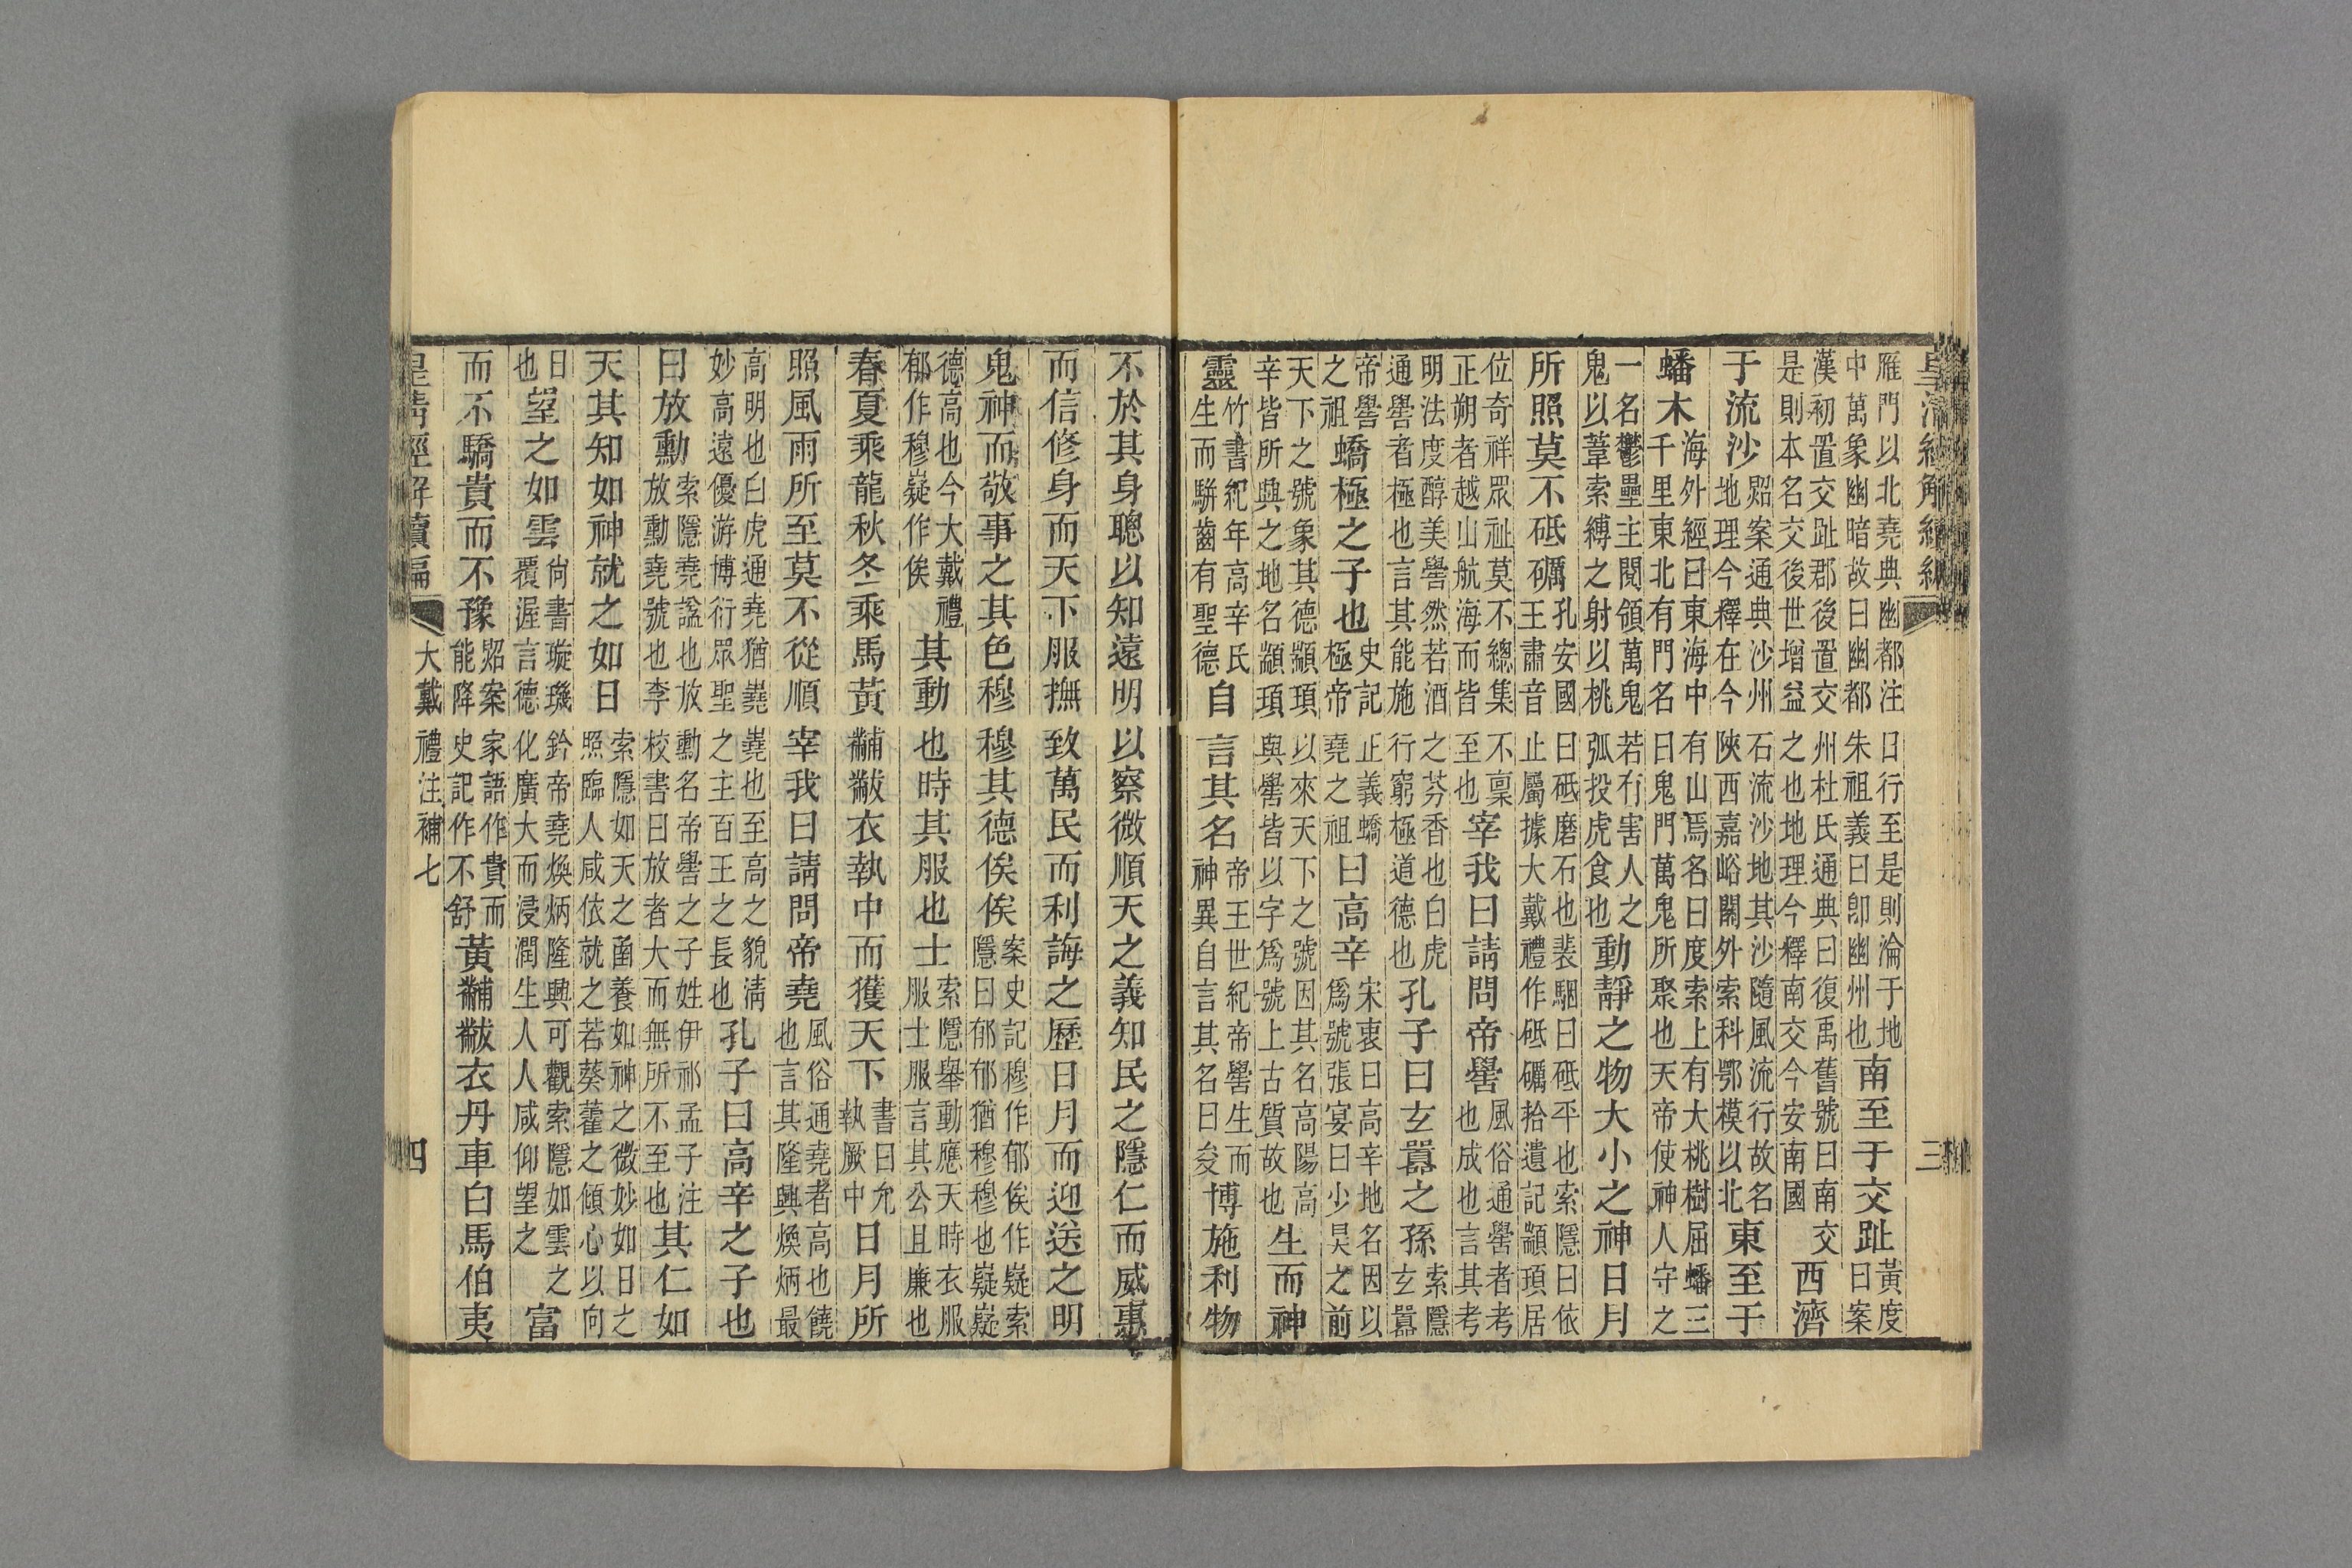 皇淸經解續編 三
雁門以北堯典幽都注日行至是則淪于地
中萬象幽暗故曰幽都朱祖義曰卽幽州也
南至于交趾
黃度
曰案
漢初置交趾郡後置交州杜氏通典曰復禹舊號曰南交
是則本名交後世增益之也地理今釋南交今安南國
西濟
于流沙
貽案通典沙州石流沙地其沙隨風流行故名
地理今釋在今陝西嘉峪關外索科鄂模以北
東至于
蟠木
海外經曰東海中有山焉名曰度索上有大桃樹屈蟠三
千里東北有門名曰鬼門萬鬼所聚也天帝使神人守之
一名鬱壘主閱領萬鬼若有害人之
鬼以葦索縛之射以桃弧投虎食也
動靜之物大小之神日月
所照莫不砥礪
孔安國曰砥磨石也裴駰曰砥平也索隱曰依
王肅音止屬據大戴禮作砥礪拾遺記顓頊居
位奇祥眾祉莫不總集不稟
正朔者越山航海而皆至也
宰我曰請問帝嚳
風俗通嚳者考
也成也言其考
明法度醇美嚳然若酒之芬香也白虎
通嚳者極也言其能施行窮極道德也
孔子曰玄囂之孫
索隱
玄囂
帝嚳
之祖
蟜極之子也
史記正義蟜
極帝堯之祖
曰高辛
宋衷曰高辛地名因以
爲號張宴曰少昊之前
天下之號象其德顓頊以來天下之號因其名高陽高
辛皆所與之地名顓頊與嚳皆以字爲號上古質故也
生而神
靈
竹書紀年高辛氏
生而駢齒有聖德
自言其名
帝王世紀帝嚳生而
神異自言其名曰夋
博施利物
不於其身聰以知遠明以察微順天之義知民之隱仁而威惠
而信修身而天下服撫致萬民而利誨之歷日月而迎送之明
鬼神而敬事之其色穆穆其德俟俟
案史記穆作郁俟作嶷索
隱曰郁郁猶穆穆也嶷嶷
德高也今大戴禮
郁作穆嶷作俟
其動也時其服也士
索隱舉動應天時衣服
服士服言其公且廉也
春夏乘龍秋冬乘馬黃黼黻衣執中而獲天下
書曰允
執厥中
日月所
照風雨所至莫不從順宰我曰請問帝堯
風俗通堯者高也饒
也言其隆興煥炳最
高明也白虎通堯猶嶤嶤也至高之貌淸
妙高遠優游博衍眾聖之主百王之長也
孔子曰高辛之子也
曰放勳
索隱堯諡也放勳名帝嚳之子姓伊祁孟子注
放勳堯號也李校書曰放者大而無所不至也
其仁如
天其知如神就之如日
索隱如天之㐭養如神之微妙如日之
照臨人咸依就之若葵藿之傾心以向
日
也
望之如雲
尙書璇璣鈐帝堯煥炳隆興可觀索隱如雲之
覆渥言德化廣大而浸潤生人人咸仰望之
富
而不驕貴而不豫
貽案家語作貴而
能降史記作不舒
黃黼黻衣丹車白馬伯夷
皇淸經解續編 大戴禮注補七 四